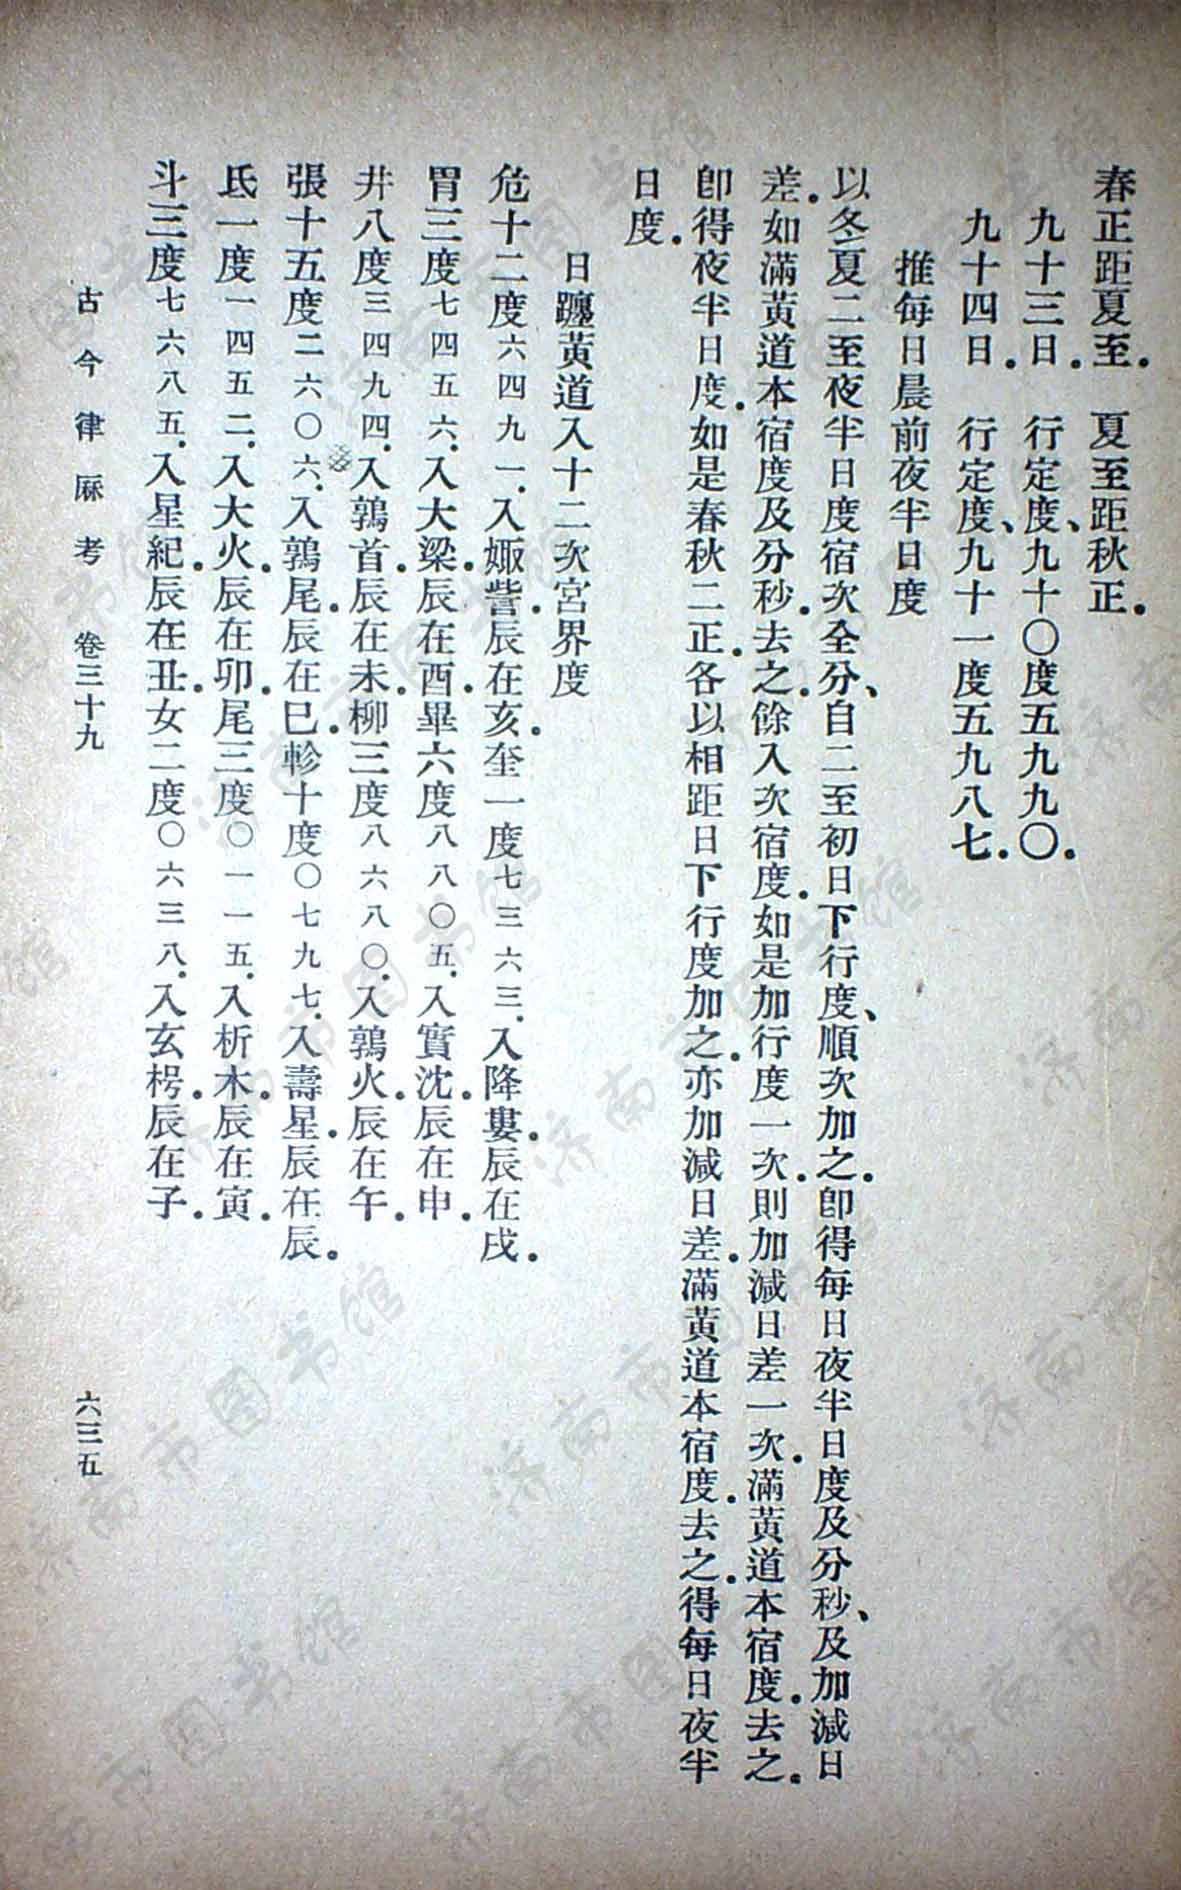 春正距夏至．　夏至距秋正．
九十三日．　行定度、九十〇度五九九〇．
九十四日．　行定度、九十一度五九八七．
推每日晨前夜半日度
以冬夏二至夜半日度宿次全分、自二至初日下行度、順次加之．卽得每日夜半日度及分秒、及加減日
差．如滿黃道本宿度及分秒．去之．餘入次宿度．如是加行度一次．則加減日差一次．滿黃道本宿度．去之．
卽得夜半日度．如是春秋二正．各以相距日下行度加之．亦加減日差．滿黃道本宿度．去之．得每日夜半
日度．
日躔黃道入十二次宮界度
危十二度六四九一．入娵訾．辰在亥．奎一度七三六三．入降婁．辰在戌．
胃三度七四五六．入大梁．辰在酉．畢六度八八〇五．入實沈．辰在申．
井八度三四九四．入鶉首．辰在未．柳三度八六八〇．入鶉火．辰在午．
張十五度二六〇六．入鶉尾．辰在巳．軫十度〇七九七．入壽星．辰在辰．
氐一度一四五二．入大火．辰在卯．尾三度〇一一五．入析木．辰在寅．
斗三度七六八五．入星紀．辰在丑．女二度〇六三八．入玄枵．辰在子．
古今律厤考　卷三十九　六三五
济南市图书馆